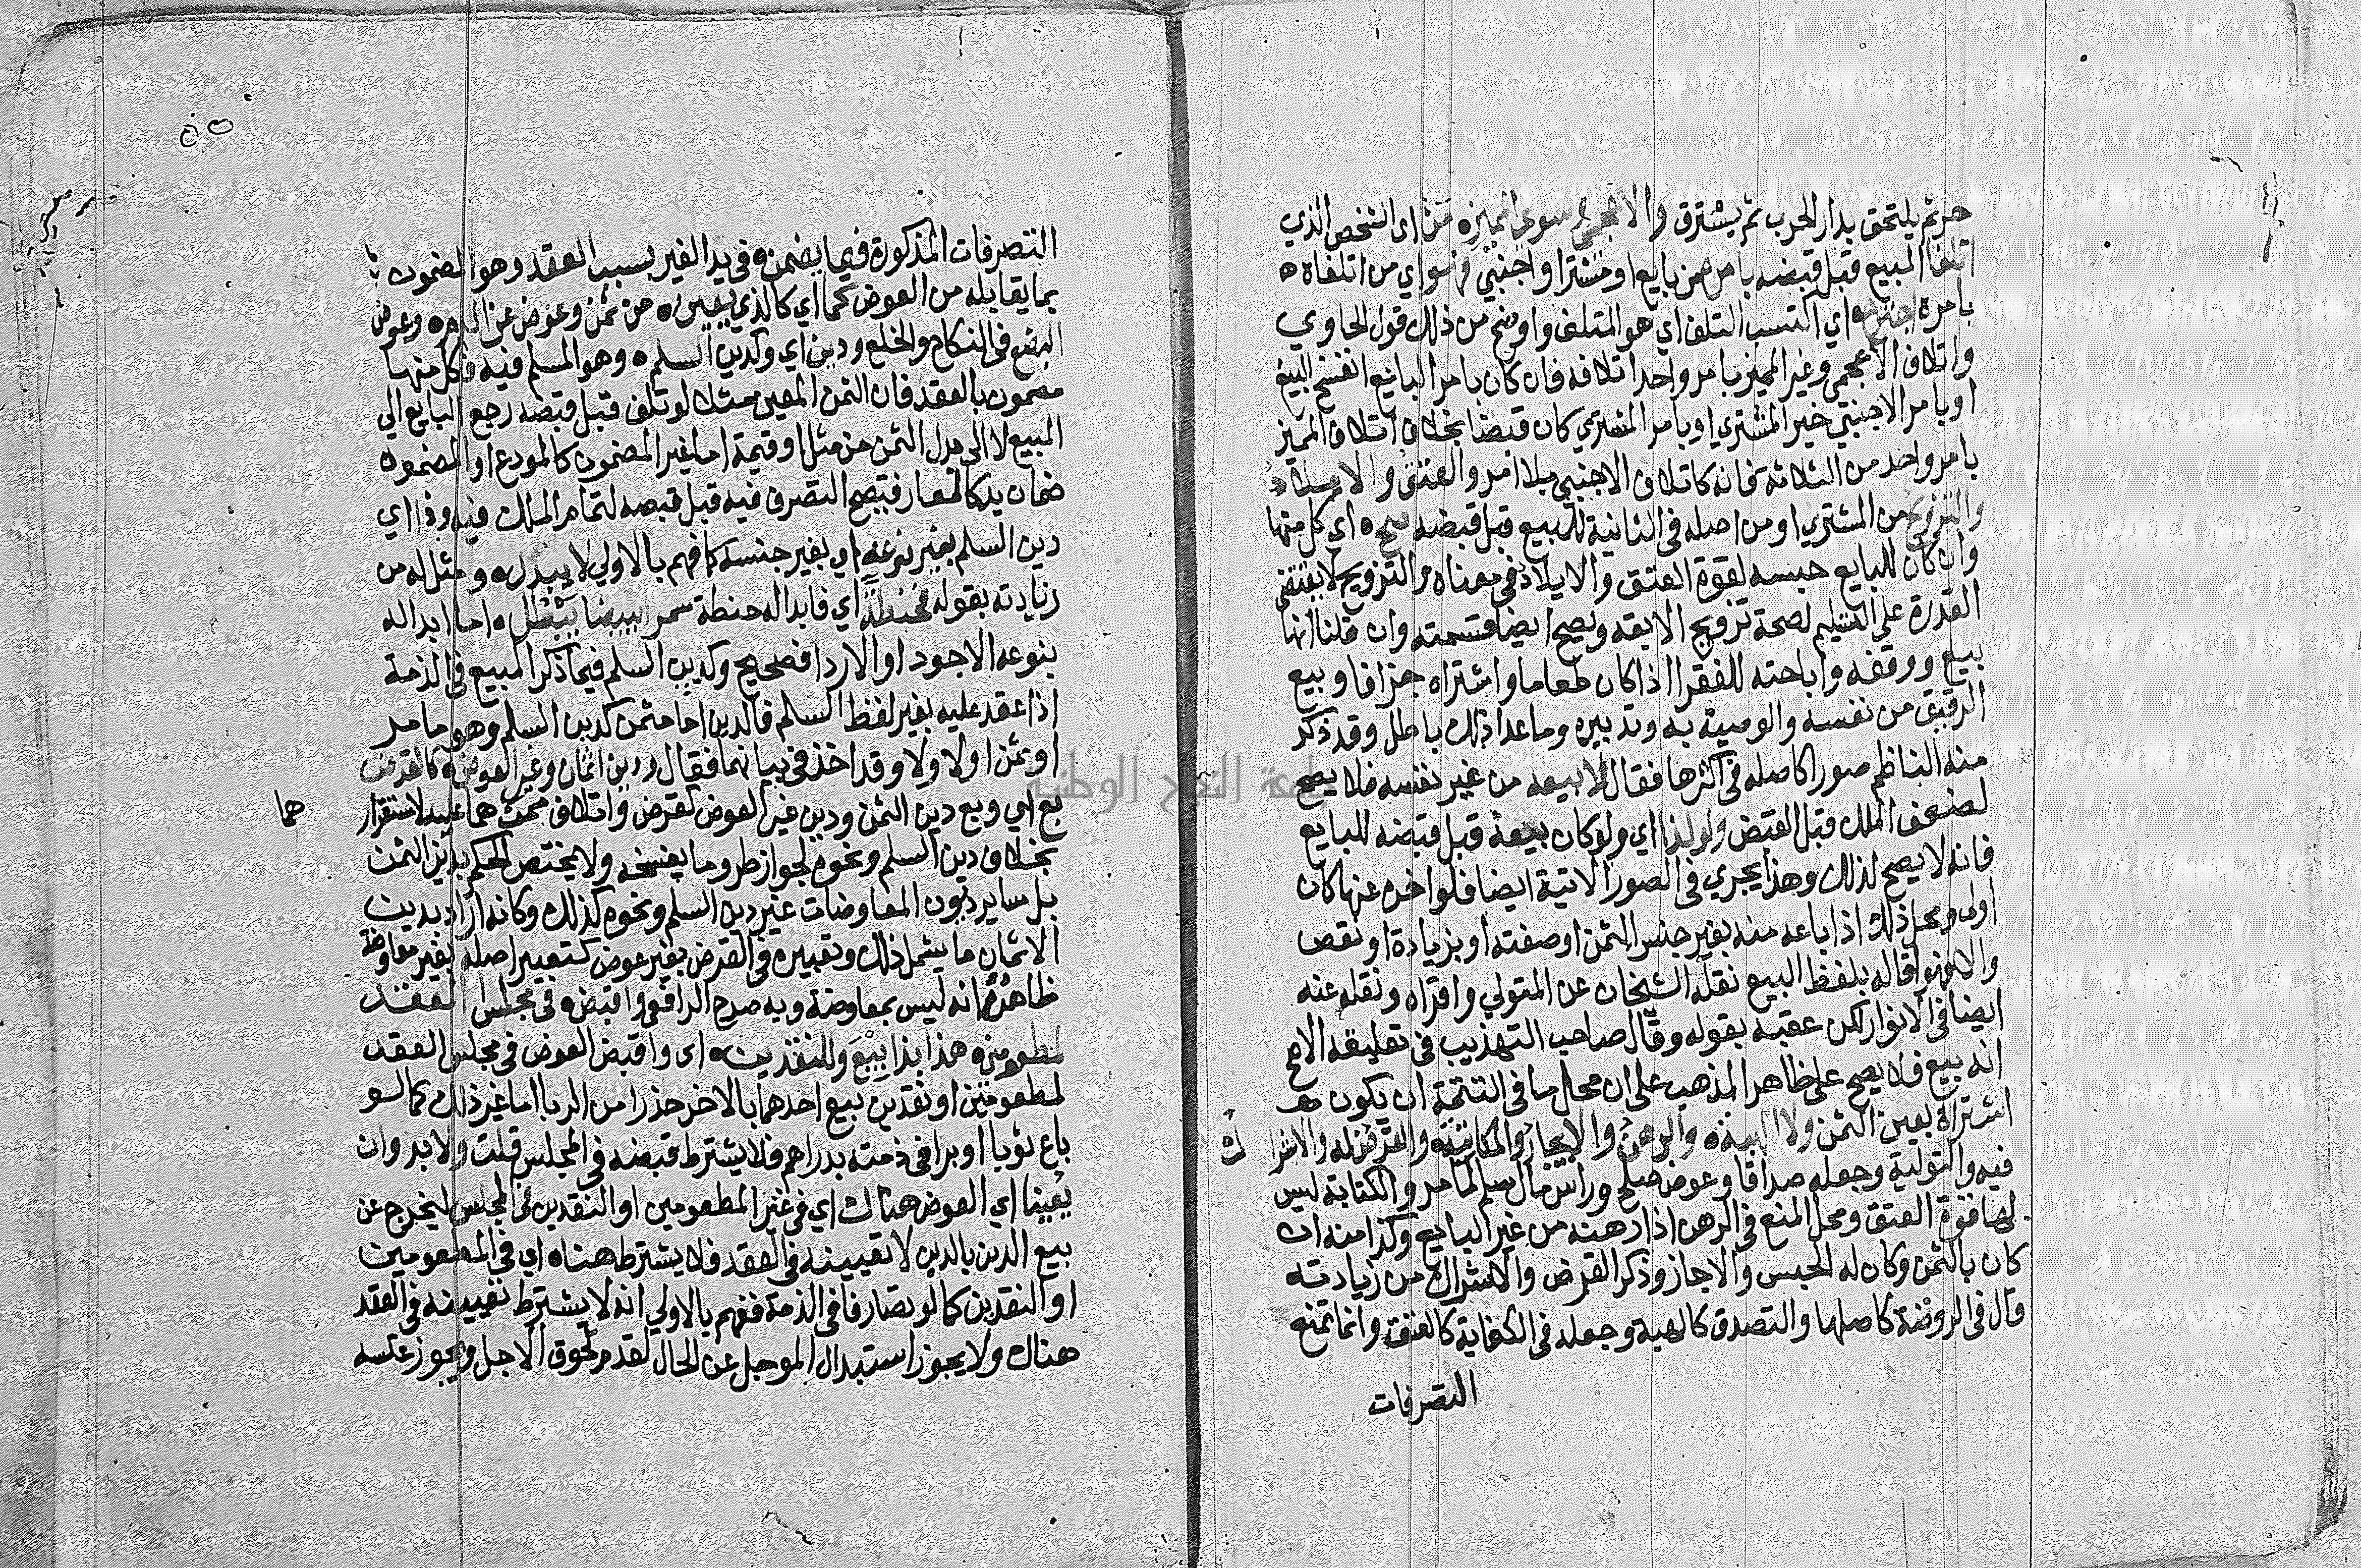 حر ثم يلتحق بدار الحرب ثم يسترق والاعجمي سوي المميز من اي الشخص الذي
اتلفا المبيع قبل قبضه بامر من بايع او مشترا واجنبي فهو اي من اتلفاه
بامره اي اكتسب التلف اي هو المتلف واوضح من ذلك قول الحاوي
واتلاف الاعجمي وغير المميز بامر واحد اتلافه فان كان بامر البايع انفسخ البيع
او بامر الاجنبي خير المشتري او بامر المشتري كان قبضا بخلاف اتلاف المميز
بامر واحد من الثلاثة فانه كاتلاف الاجنبي بلا امر والعتق والايلاد
والتزويج من المشتري او من اصله في الثانية للمبيع قبل قبضه صح اي كل منها
وان كان للبايع حبسه لقوة العتق والايلاد في معناه والتزويج لا يقتضي
القدرة على التسليم لصحة تزويج الابقه ويصح ايضا قسمته وان قلنا انها
بيع ووقفه واباحته للفقرا اذا كان طعاما واشتراه جزافا وبيع
الرقيق من نفسه والوصية به وتدبيره وما عدا ذلك باطل وقد ذكر
منه الناظم صورا كاصله في اكثرها فقال لا بيعه من غير نفسه فلا يصح
لضعف الملك قبل القبض ولو لذا اي ولو كان بيعه قبل قبضه للبايع
فانه لا يصح لذلك وهذا يجري في الصور الاتية ايضا فلو اخره عنها كان
اولى ومحل ذلك اذا باعه منه بغير جنس الثمن او صفته او بزيادة او نقص
والا فهو اقاله بلفظ البيع نقله الشيخان عن المتولي واقراه ونقله عنه
ايضا في الانوار لكن عقبه بقوله وقال صاحب التهذيب في تعليقه الاصح
انه بيع فلا يصح على ظاهر المذهب على ان محل ما في التتمة ان يكون
اشتراه بعين الثمن ولا الهبة والرهن والايجار والمكاتبة والقرض له والاشرا ك
فيه والتولية وجعله صداقا وعوض صلح وراس مال سلم لما مر والكتابة ليس
لها قوة العتق ومحل المنع في الرهن اذا رهنه من غير البايع وكذا منه ان
كان بالثمن وكان له الحبس والا جاز وذكر القرض والاشراك من زيادته
قال في الروضة كاصلها والتصدق كالهبة وجعله في الكفاية كالعتق وانما تمنع
التصرفات
٥٥
التصرفات المذكورة فيما يضمن في يد الغير بسبب العقد وهو المضمون
بما يقابله من العوض كما اي كالذي يعين من ثمن وعوض عن الدم وعوض
البضع في النكاح والخلع ودين اي وكدين السلم وهو المسلم فيه فكل منها
مضمون بالعقد فان الثمن المعين مثلا لو تلف قبل قبضه رجع البايع الي
المبيع لا الى بدل الثمن من مثل او قيمة اما لغير المضمون كالمودع او المضمون
ضمان يد كالمعار فيصح التصرف فيه قبل قبضه لتمام الملك فيه وذا اي
دين السلم بغير نوعه اي بغير جنسه كما فهم بالاولي لا يبدل ومثل له من
زيادته بقوله فحنطة اي فابداله حنطة سمرا ببيضا يبطل اما ابداله
بنوعه الاجود او الاردا فصحيح وكدين السلم فيما ذكر المبيع في الذمة
اذا عقد عليه بغير لفظ السلم فالدين اما مثمن كدين السلم وهو ما مر
او ثمن او لا ولا وقد اخذ في بيانهما فقال ودين اثمان وغير العوض كالقرض
بع اي وبع دين الثمن ودين غير العوض كقرض واتلاف ممن هما عليه لاستقرار
هما
بخلاف دين السلم ونحوه لجواز طرو ما يفسخه ولا يختص الحكم بدين الثمن
بل ساير ديون المعاوضات غير دين السلم ونحوه كذلك وكانه اراد بدين
الاثمان ما يشمل ذلك وتعبيره في القرض بغير عوض كتعبير اصله بغير معاوضة
ظاهره انه ليس بمعاوضة وبه صرح الرافعي واقبض في مجلس العقد
لمطعومين هذا بذا بيع وللنقدين اي واقبض العوض في مجلس العقد
لمطعومين او نقدين بيع احدهما بالاخر حذرا من الربا اما غير ذلك كما لو
باع ثوبا او برا في ذمته بدراهم فلا يشترط قبضه في المجلس قلت ولا بد وان
يعينا اي العوض هناك اي في غير المطعومين او النقدين في المجلس ليخرج عن
بيع الدين بالدين لا تعيينه في العقد فلا يشترط هناه اي في المطعومين
او النقدين كما لو تصارفا في الذمة ففهم بالاولي انه لا يشترط تعيينه في العقد
هناك ولا يجوز استبدال الموجل عن الحال لعدم لحوق الاجل ويجوز عكسه
جامعة النجاح الوطنية